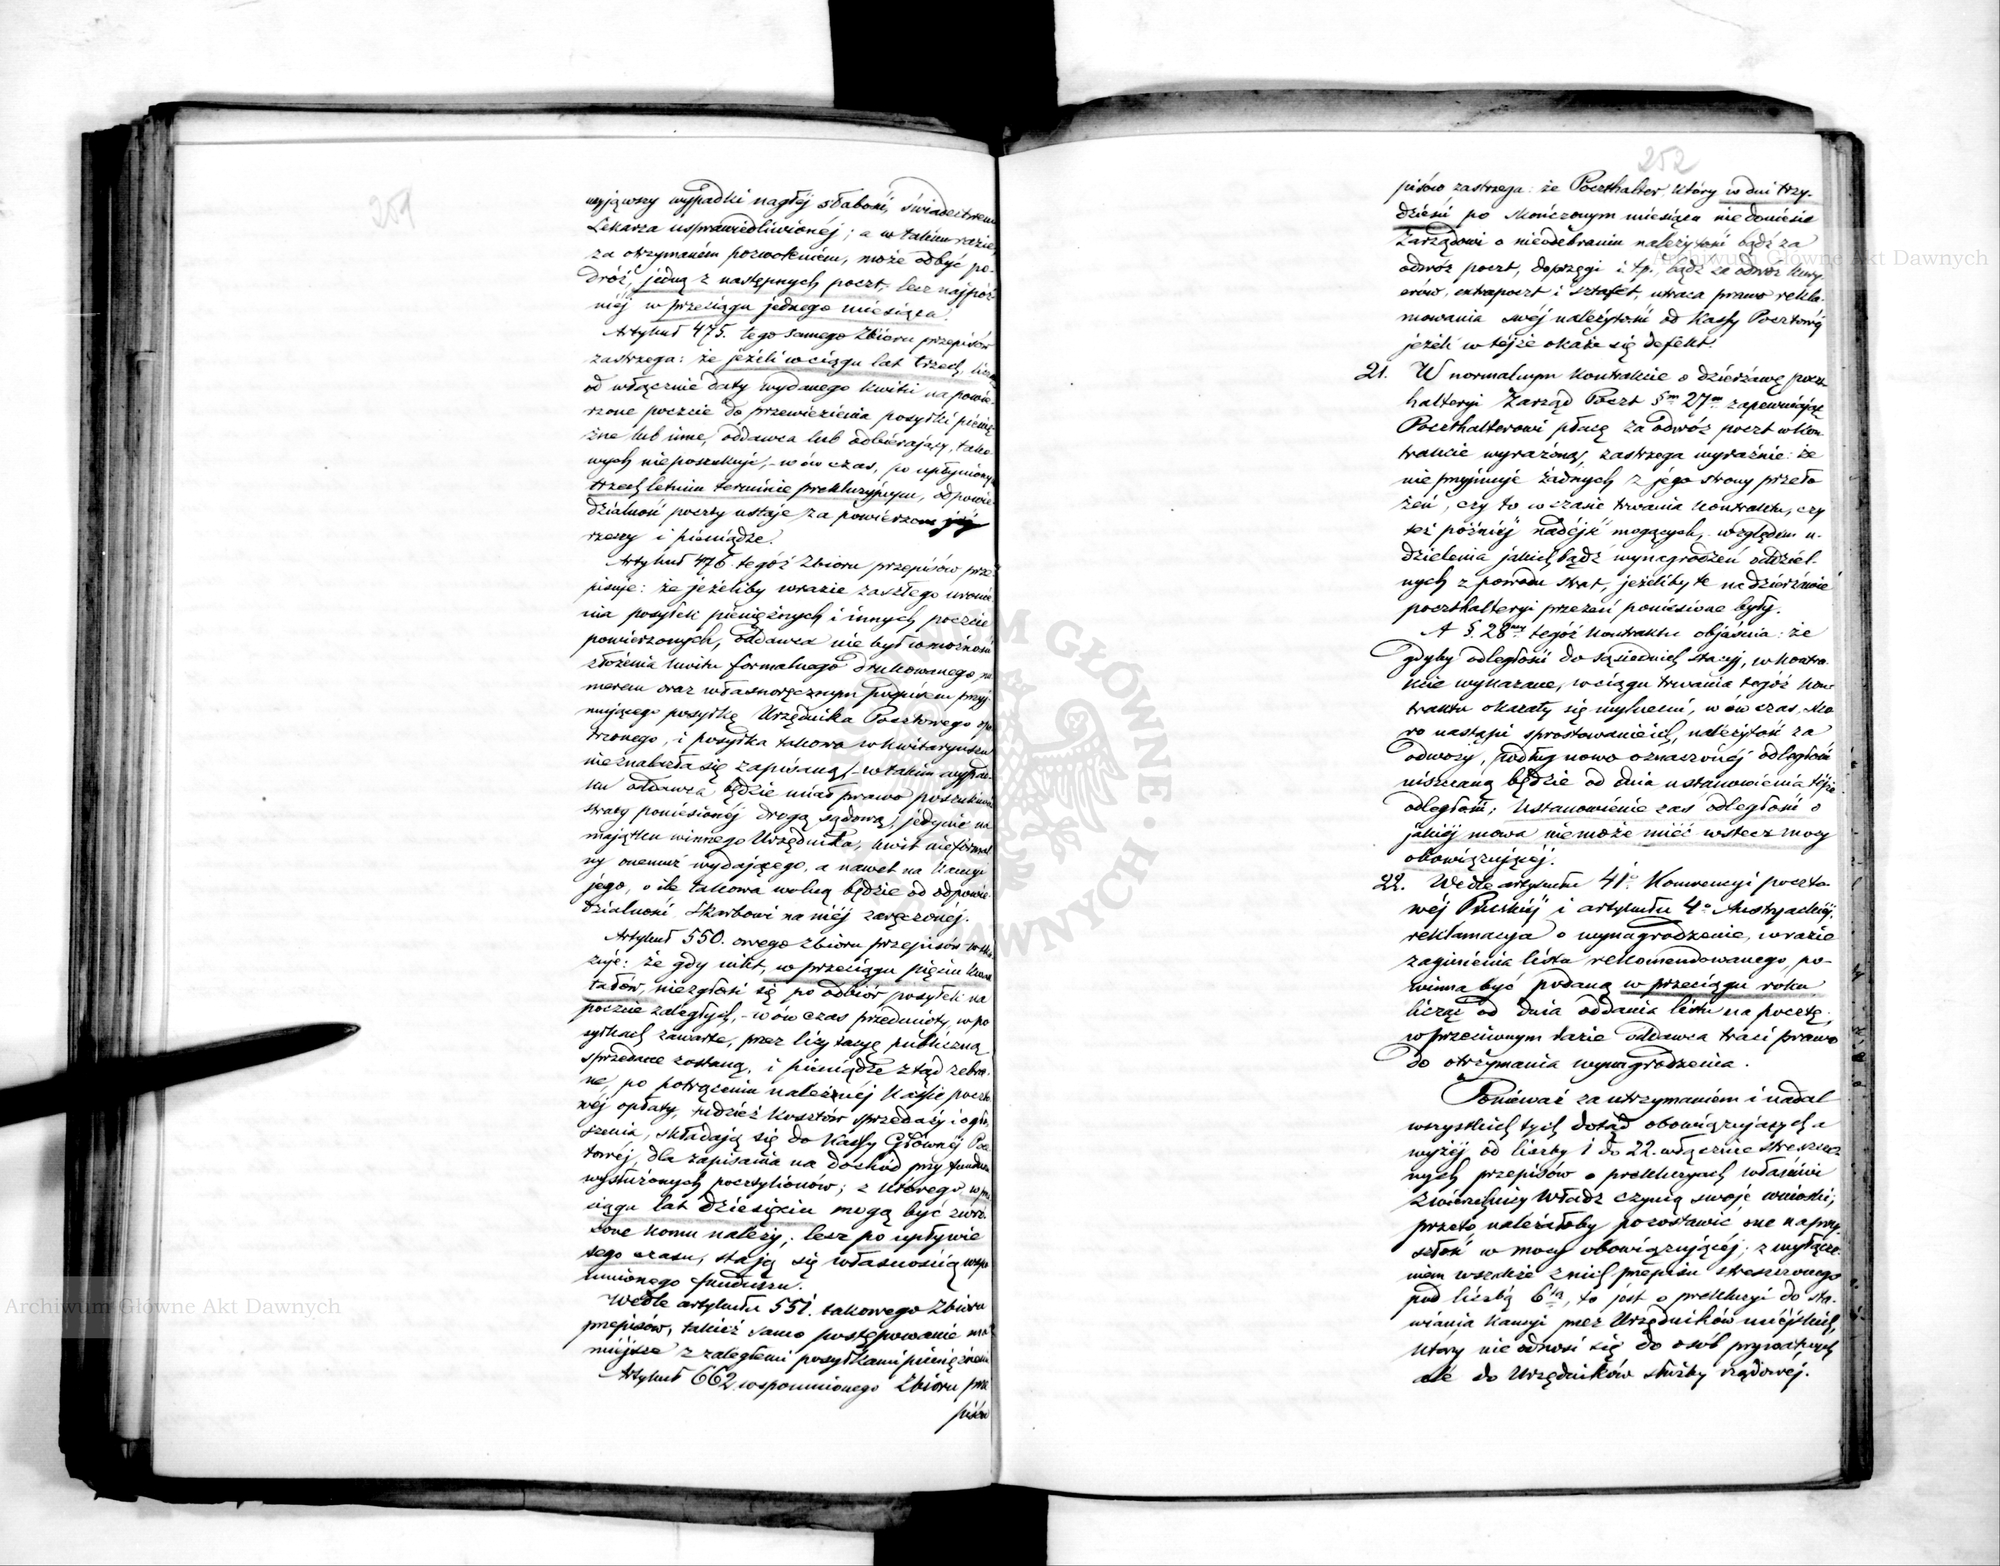 251
wyjąwszy wypadki nagłéj słabości, świadectwem
Lekarza usprawiedliwionéj; a w takim razie,
za otrzymaném pozwoleniem, może odbyć po-
dróż, jedną z następnych poczt, lecz najpóź
niéj w przeciągu jednego miesiąca.
Artykuł 475. tego samego Zbioru przepisów
zastrzega: że jeżeli w ciągu lat trzech, licząc
od włącznie daty wydanego kwitu na powie-
rzone poczcie do przewiezienia posyłki pienię
żne lub inne, oddawca lub odbierający, tako-
wych nieposzukuje, - w ów czas, po upłynionym
trzech letnim terminie prekluzyjnym, odpowie
dzialność poczty ustaje za powierzone jéj
rzeczy i pieniądze.
Artykuł 476. tegoż Zbioru przepisów prze-
pisuje: że jeżeliby w razie zaszłego uronie
nia posyłek pieniężnych i innych poczcie
powierzonych, oddawca nie był w możności
złożenia kwitu formalnego drukowanego, nu
merem oraz własnoręcznym podpisem przyj
mującego posyłkę Urzędnika Pocztowego opa
trzonego, i posyłka takowa w kwitaryuszu
nieznalazła się zapisaną, - w takim wypad-
ku oddawca będzie miał prawo poszukiwać
straty poniesionéj drogą sądową, jedynie na
majątku winnego Urzędnika, kwit nieformal
ny onemuż wydającego, a nawet na kaucyi
jego, o ile takowa wolną będzie od odpowie-
dzialności Skarbowi na niéj zaręczonéj.
Artykuł 550. owego Zbioru przepisów wska
zuje: że gdy nikt, w przeciągu pięciu kwar
tałów, niezgłosi się po odbiór posyłek na
poczcie zaległych, - w ów czas przedmioty w po
syłkach zawarte, przez licytacyę publiczną
sprzedane zostaną, i pieniądze ztąd zebra-
ne, po potrąceniu należnéj Kassie poczto
wéj opłaty, tudzież kosztów sprzedaży i ogło
szenia, składają się do Kassy Głównéj Pocz
towéj, dla zapisania na dochód przy funduszu
wysłużonych pocztylionów; z którego, w prze
ciągu lat dziesięciu mogą być zwró-
cone komu należy; lecz po upływie
tego czasu, stają się własnością wspo
mnionego funduszu.
Wedle artykułu 551. takowego Zbioru
przepisów, takież samo postępowanie ma
miejsce z zaległemi posyłkami pieniężnemi
Artykuł 662. wspomnionego Zbioru prze
pisów
252
pisów zastrzega: że Poczthalter, który w dni trzy-
dzieści po skończonym miesiącu nie doniesie
Zarządowi o nieodebraniu należytości bądź za
odwóz poczt, doprzęgi i t.p., bądź za odwóz kury
erów, extrapoczt i sztafet, utraca prawo rekla-
mowania swéj należytości od Kassy Pocztowéj
jeżeli w téjże okaże się defekt.
21. W normalnym kontrakcie o dzierżawę pocz
halteryi Zarząd Poczt §m 27m zapewniając
Poczthalterowi płacę za odwóz poczt w kon-
trakcie wyrażoną, zastrzega wyraźnie: że
nie przyjmuje żadnych z jego strony przeło
żeń, czy to w czasie trwania kontraktu, czy
też późniéj nadejść mogących, względem u-
dzielenia jakichbądź wynagrodzeń oddziel-
nych z powodu strat, jeżeliby te na dzierżawie
poczthalteryi przezeń poniesione były.
A §. 28my tegoż kontraktu objaśnia: że
gdyby odległości do sąsiednich stacyj, w kontra-
kcie wykazane, w ciągu trwania tegoż kon-
traktu okazały się mylnemi, w ów czas, sko
ro nastąpi sprostowanie ich, należytość za
odwozy, podług nowo oznaczonéj odległości
uiszczaną będzie od dnia ustanowienia téjże
odległości; ustanowienie zaś odległości o
jakiéj mowa niemoże mieć wstecz mocy
obowiązującéj.
22. Wedle artykułu 41o Konwencyi poczto-
wéj Pruskiéj i artykułu 4o Austryackiéj,
reklamacya o wynagrodzenie, w razie
zaginienia listu rekomendowanego, po-
winna być podaną w przeciągu roku,
licząc od dnia oddania listu na pocztę;
w przeciwnym razie oddawca traci prawo
do otrzymania wynagrodzenia.
Ponieważ za utrzymaniem i nadal
wszystkich tych dotąd obowiązujących a
wyżéj od liczby 1 do 22. włącznie streszczo
nych przepisów o prekluzyach właściwe
Zwierzchnicy Władz czynią swoje wnioski;
przeto należałoby pozostawić one na przy
szłość w mocy obowiązującéj; z wyłącze-
niem wszakże z nich przepisu streszczonego
pod liczbą 6ta, to jest o prekluzyi do sta-
wiania kaucyi przez Urzędników miejskich,
który nie odnosi się do osób prywatnych
ale do Urzędników służby rządowéj.
ARCHIWUM GŁÓWNE AKT DAWNYCH
Archiwum Główne Akt Dawnych
Archiwum Główne Akt Dawnych